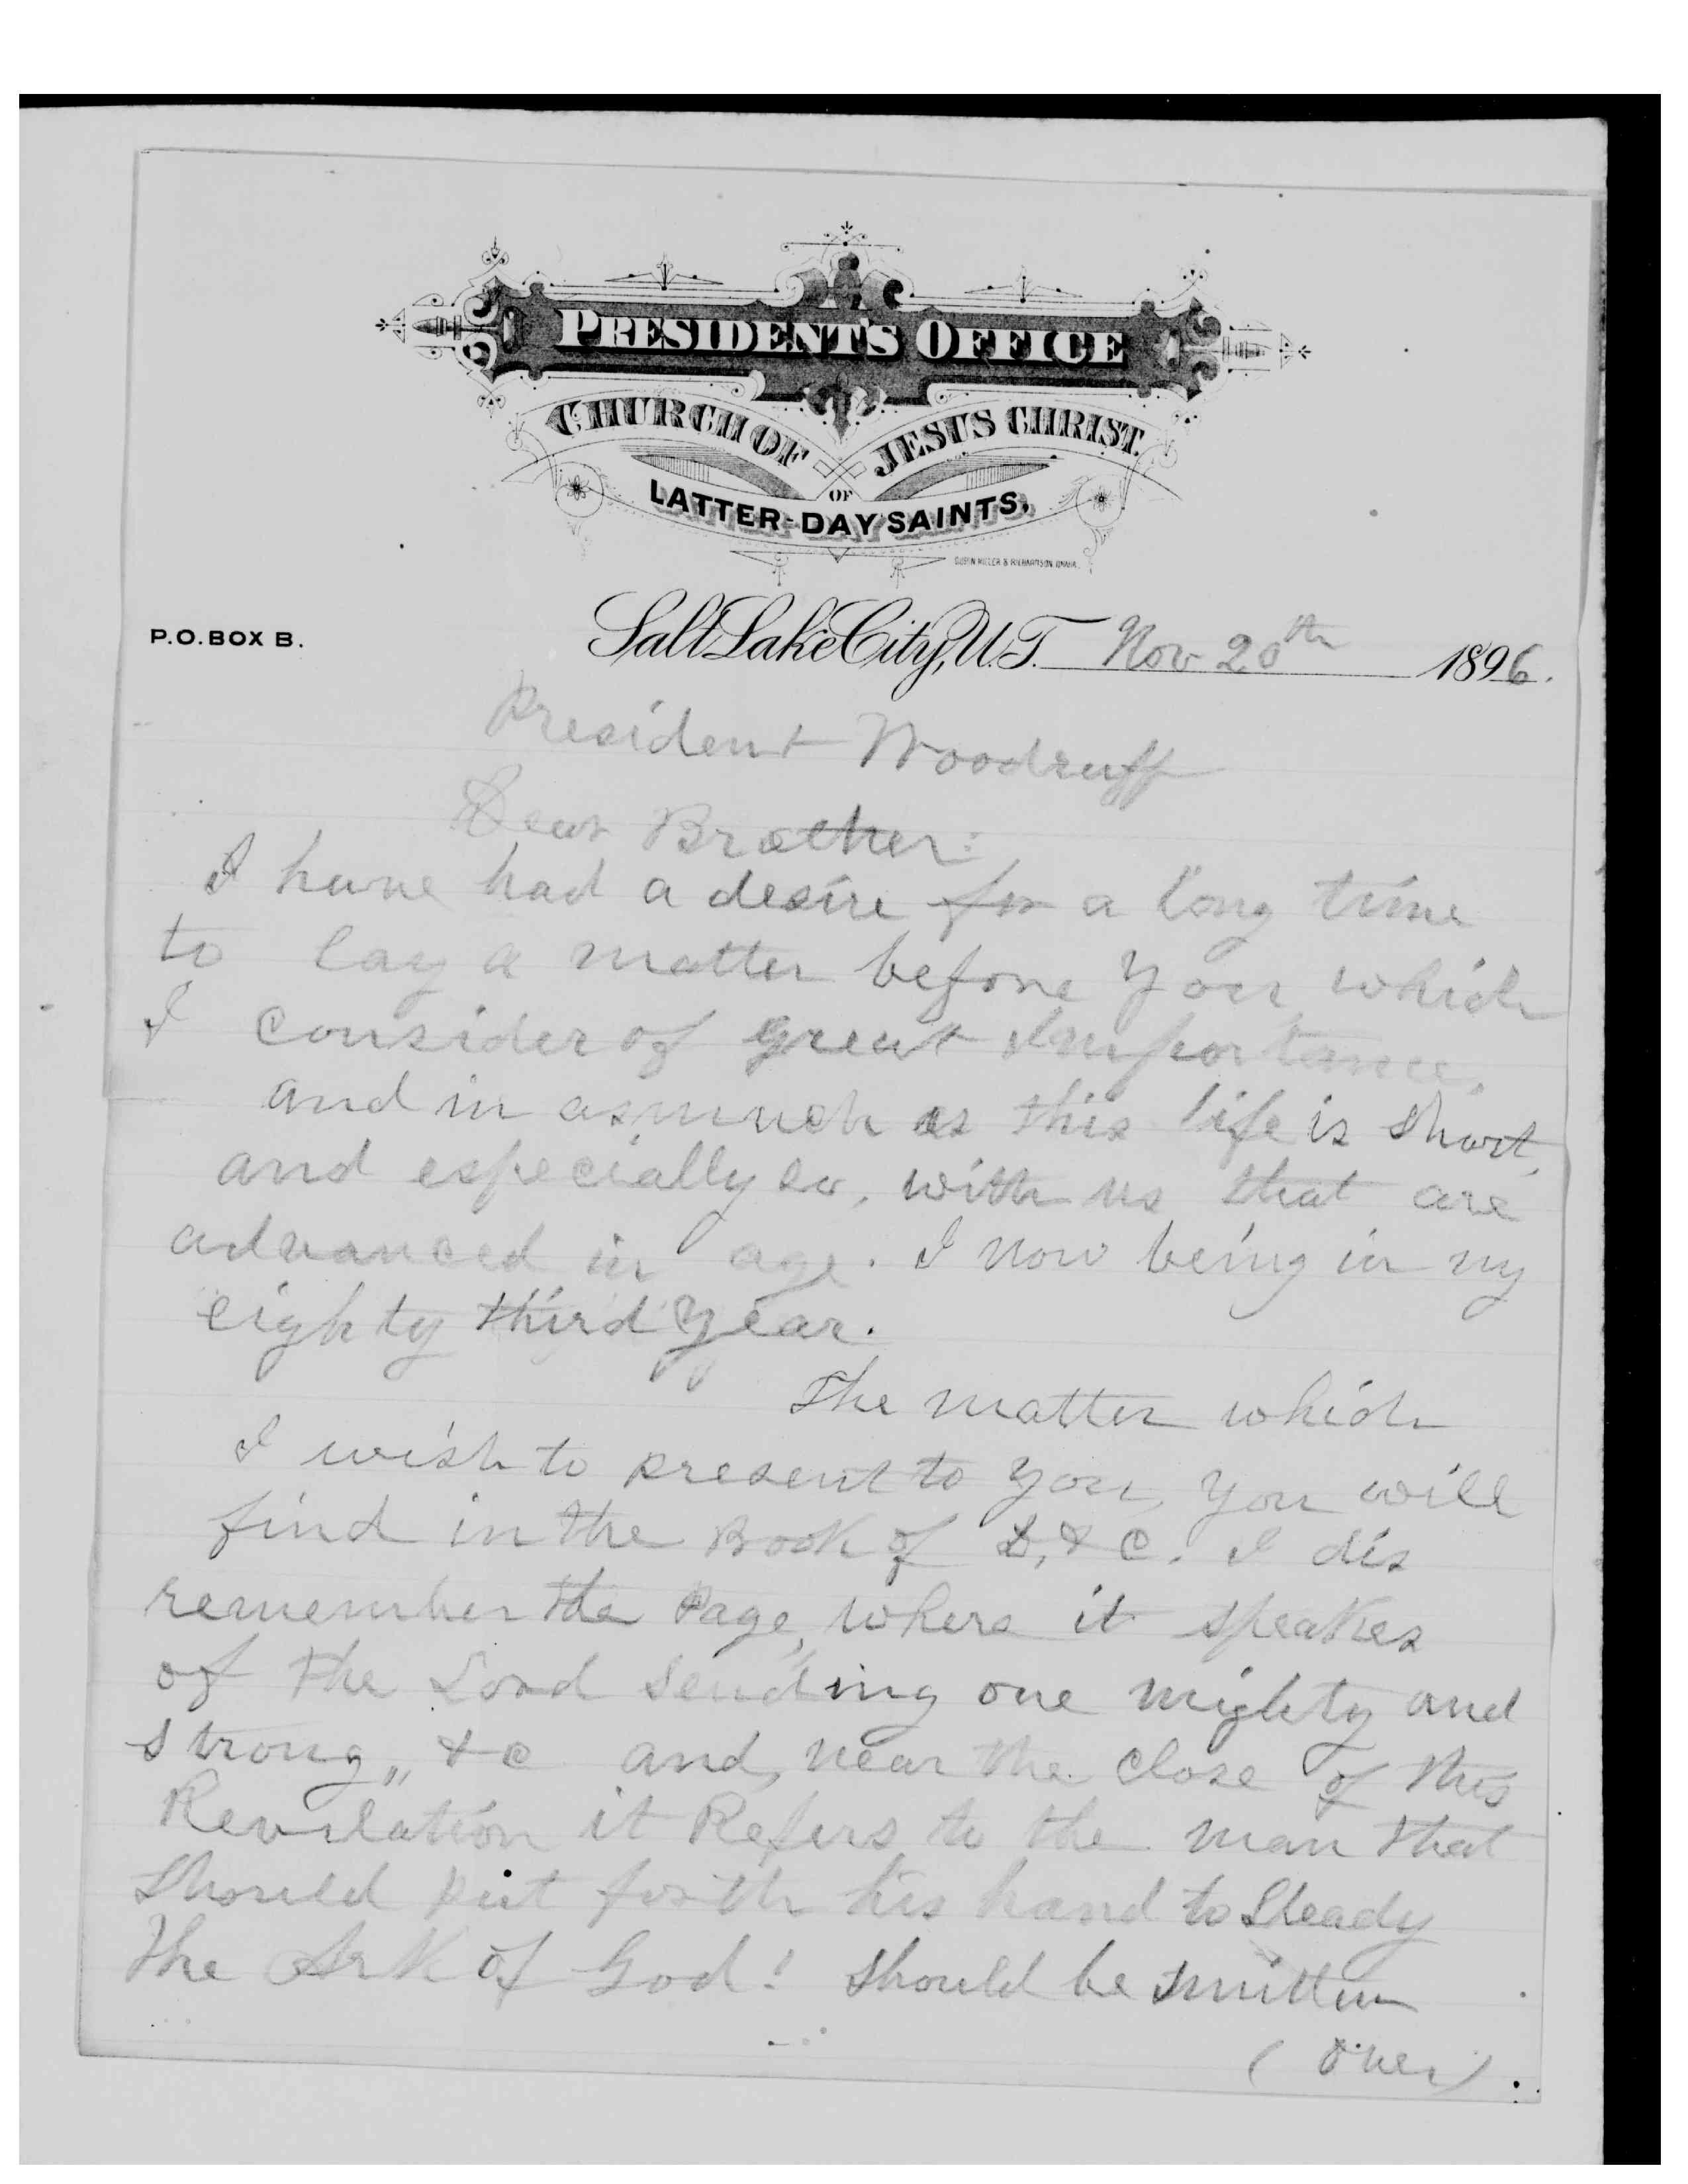 PRESIDENT'S OFFICE
CHURCH OF JESUS CHRIST
OF
LATTER-DAY SAINTS.
P.O. BOX B.
Salt Lake City, U.T. Nov 20th 1896.
President Woodruff
Dear Brother:
I have had a desire for a long time
to lay a matter before you, which
I consider of great Importance,
and in asmuch as this life is short,
and especially so, with us that are
advanced in age. I now being in my
eighty third year.
The matter which
I wish to present to you, you will
find in the Book of D, & C. I dis
remember the Page, where it speakes
of the Lord sending one mighty and
strong,, &c and, near the close of this
Revelation it Refers to the man that
should put forth his hand to Steady
the Ark of God! should be smitten
(over)